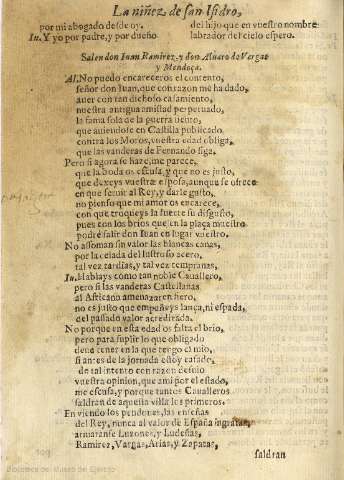 La niñez de san Isidro,
por mi abogado desde oy.
In. Y yo por padre, y por dueño
del hijo que en vuestro nombre
labrador del cielo espero.
Salen don Iuan Ramirez, y don Aluaro de Vargas
y Mendoça.
Al. No puedo encareceros el contento,
señor don Iuan, que con razon me ha dado,
auer con tan dichoso casamiento,
nuestra antigua amistad perpetuado,
la fama sola de la guerra
que auiendose en Castilla publicado
contra los Moros, vuestra edad obliga,
que las vanderas de Fernando siga.
Pero si agora se haze, me parece,
que la boda os escusa, y que no es justo,
que dexeys vuestra esposa, aunque se ofrece
en que seruir al Rey, y darle gusto,
no pienso que mi amor os encarece,
con que troqueys la suerte su disgusto,
pues con los brios que en la plaça muestro
podré salir don Iuan en lugar vuestro.
No assoman sin valor las blancas canas,
por la celada del lustroso acero,
tal vez tardias, y tal vez tempranas,
Iu. Hablays como tan noble Cauallero,
pero si las vanderas Castellanas
al Africano amenazan fiero,
no es justo que empuñeys lança, ni espada,
del passado valor acreditada.
No porque en esta edad os falta el brio,
pero para suplir lo que obligado
deue tener en la que tengo el mio,
si antes de la jornada estoy casado,
de tal intento con razon desuio
vuestra opinion, que a mi por el estado,
me escusa, y porque tantos Caualleros
saldran de aquesta villa los primeros.
En viendo los pendones, las enseñas
del Rey, nunca al valor de España ingratas,
armaranse Luzones, y Ludeñas,
Ramirez, Vargas, Arias, y Zapatas,
saldran
Biblioteca del Museo del Ejército